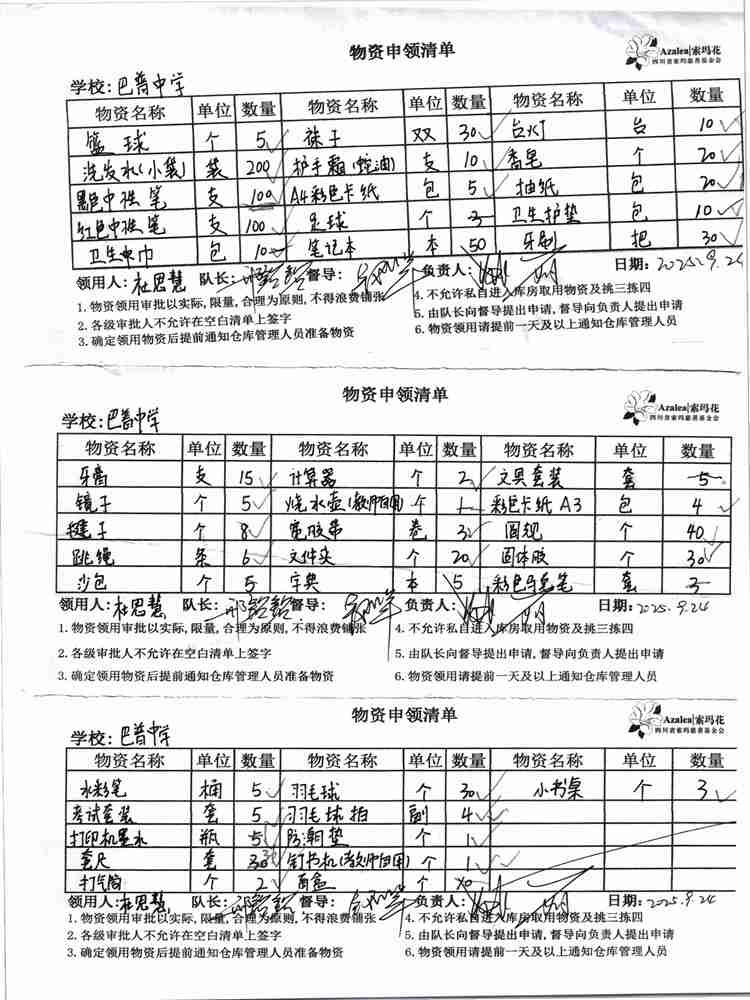 物资申领清单
Azalea|索玛花
四川省索玛慈善基金会
学校:巴普中学
物资名称 单位 数量 物资名称 单位 数量 物资名称 单位 数量
篮球 个 5 袜子 双 30 台灯 台 10
洗发水(小袋) 袋 200 护手霜(蛇油) 支 10 香皂 个 20
黑色中性笔 支 100 A4彩色卡纸 包 5 抽纸 包 20
红色中性笔 支 100 足球 个 3 卫生护垫 包 10
卫生巾 包 10 笔记本 本 50 牙刷 把 30
领用人:杜思慧 队长: 督导: 负责人: 日期:2025.9.24
1.物资领用审批以实际,限量,合理为原则,不得浪费铺张 4.不允许私自进入库房取用物资及挑三拣四
2.各级审批人不允许在空白清单上签字 5.由队长向督导提出申请,督导向负责人提出申请
3.确定领用物资后提前通知仓库管理人员准备物资 6.物资领用请提前一天及以上通知仓库管理人员
物资申领清单
Azalea|索玛花
四川省索玛慈善基金会
学校:巴普中学
物资名称 单位 数量 物资名称 单位 数量 物资名称 单位 数量
牙膏 支 15 计算器 个 2 文具套装 套 5
镜子 个 5 烧水壶(教师自用) 个 1 彩色卡纸A3 包 4
毽子 个 8 宽胶带 卷 3 圆规 个 40
跳绳 条 6 文件夹 个 20 固体胶 个 30
沙包 个 5 字典 本 5 彩色马克笔 套 3
领用人:杜思慧 队长: 督导: 负责人: 日期:2025.9.24
1.物资领用审批以实际,限量,合理为原则,不得浪费铺张 4.不允许私自进入库房取用物资及挑三拣四
2.各级审批人不允许在空白清单上签字 5.由队长向督导提出申请,督导向负责人提出申请
3.确定领用物资后提前通知仓库管理人员准备物资 6.物资领用请提前一天及以上通知仓库管理人员
物资申领清单
Azalea|索玛花
四川省索玛慈善基金会
学校:巴普中学
物资名称 单位 数量 物资名称 单位 数量 物资名称 单位 数量
水彩笔 桶 5 羽毛球 个 30 小书桌 个 3
考试套装 套 5 羽毛球拍 副 4
打印机墨水 瓶 5 防潮垫 个 1
套尺 套 30 钉书机(教师自用) 个 1
打气筒 个 2 盲盒 个 10
领用人:杜思慧 队长: 督导: 负责人: 日期:2025.9.24
1.物资领用审批以实际,限量,合理为原则,不得浪费铺张 4.不允许私自进入库房取用物资及挑三拣四
2.各级审批人不允许在空白清单上签字 5.由队长向督导提出申请,督导向负责人提出申请
3.确定领用物资后提前通知仓库管理人员准备物资 6.物资领用请提前一天及以上通知仓库管理人员